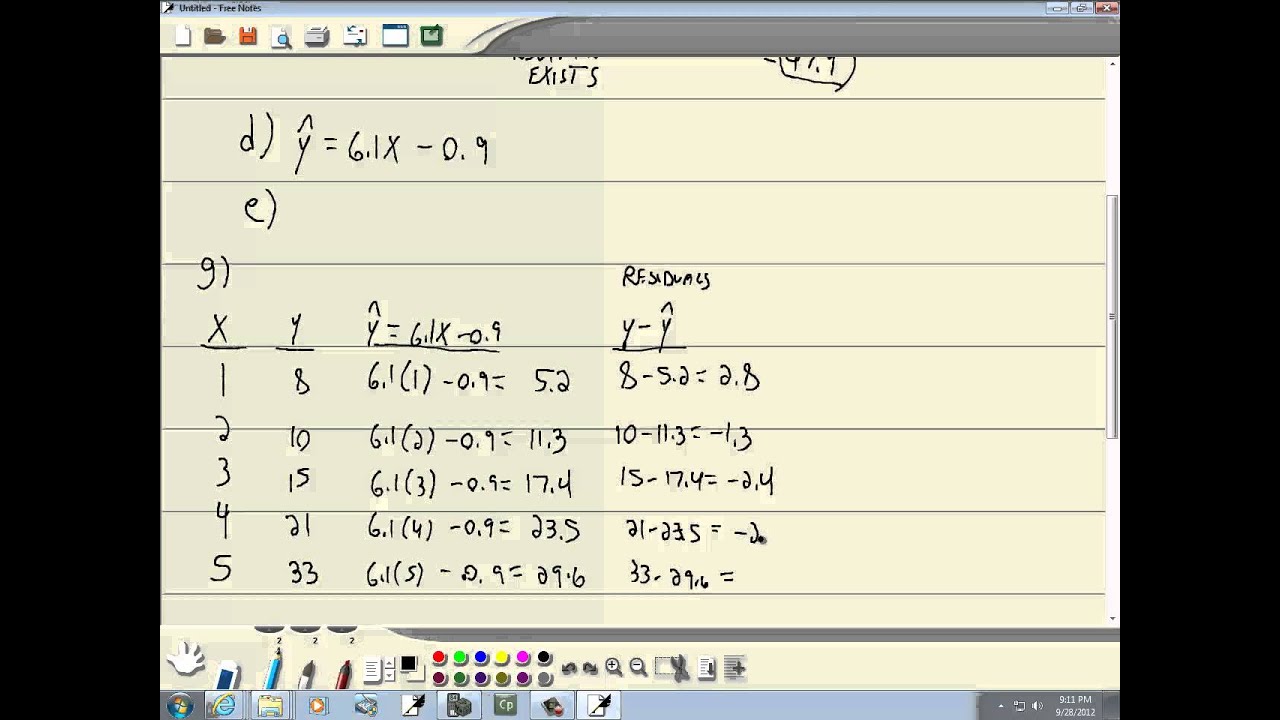 Untitled - Free Notes
EXISTS
= 47.9
d) ŷ = 6.1X - 0.9
e)
g)
RESIDUALS
X Y Ŷ = 6.1X - 0.9 y - ŷ
1 8 6.1(1) - 0.9 = 5.2 8 - 5.2 = 2.8
2 10 6.1(2) - 0.9 = 11.3 10 - 11.3 = -1.3
3 15 6.1(3) - 0.9 = 17.4 15 - 17.4 = -2.4
4 21 6.1(4) - 0.9 = 23.5 21 - 23.5 = -2.
5 33 6.1(5) - 0.9 = 29.6 33 - 29.6 =
2 2 2
Cp
9:11 PM
9/28/2012